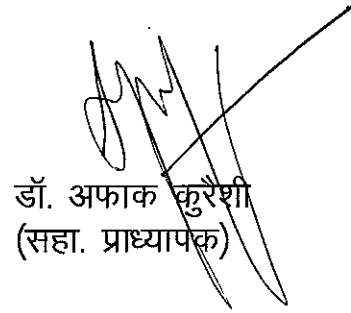 डॉ. अफाक कुरैशी
(सहा. प्राध्यापक)